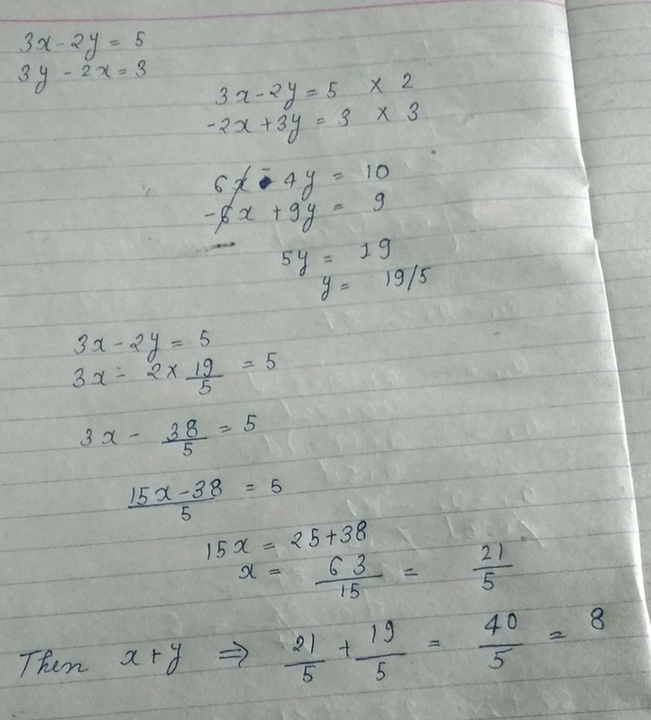 3x - 2y = 5
3y - 2x = 3
3x - 2y = 5 × 2
-2x + 3y = 3 × 3
6x - 4y = 10
-6x + 9y = 9
5y = 19
y = 19/5
3x - 2y = 5
3x - 2 × 19/5 = 5
3x - 38/5 = 5
15x - 38/5 = 5
15x = 25 + 38
x = 63/15 = 21/5
Then x + y ⇒ 21/5 + 19/5 = 40/5 = 8